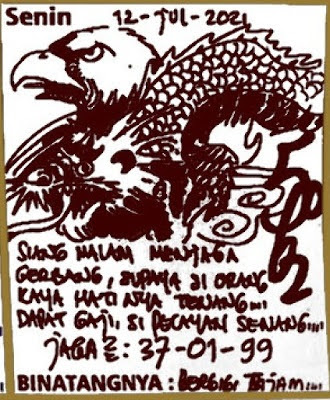 Senin 12-JUL-2021
SIANG MALAM MENJAGA
GERBANG, SUPAYA SI ORANG
KAYA HATI NYA TENANG....
DAPAT GAJI, SI PELAYAN SENANG....
JAGA 2 : 37-01-99
BINATANGNYA : BERGIGI TAJAM....